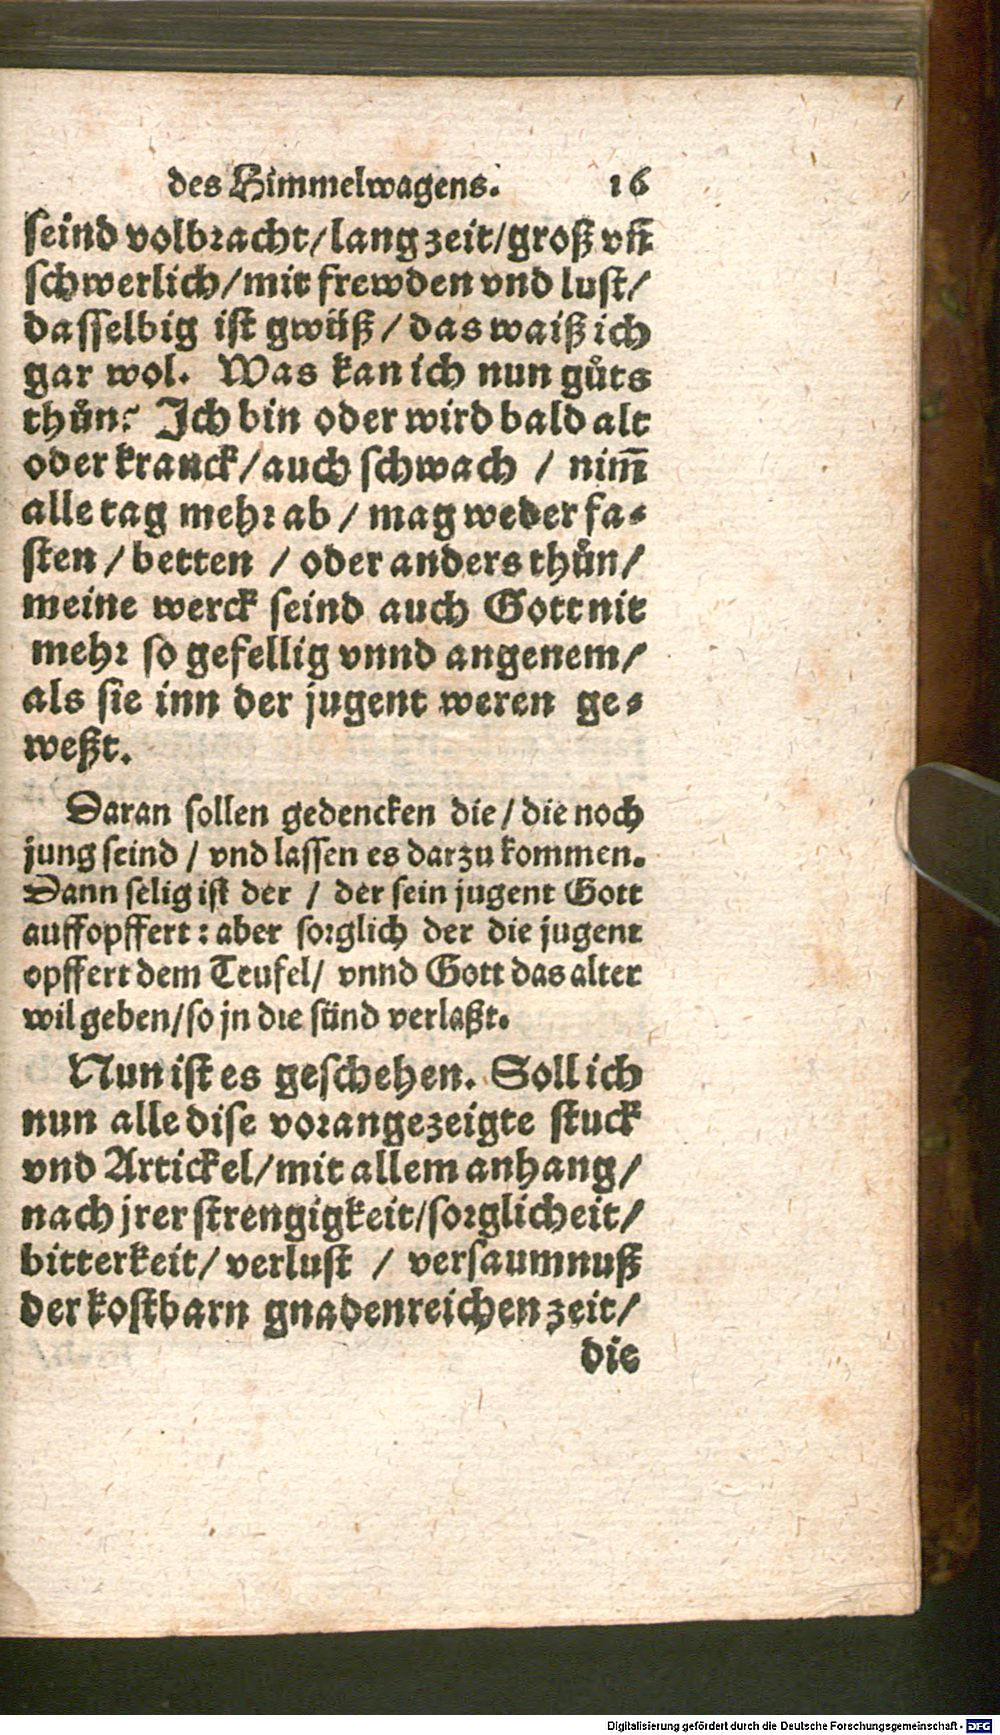 des Himmelwagens. 16
seind volbracht/lang zeit/groß vñ
schwerlich/mit frewden vnd lust/
dasselbig ist gwüß/das waiß ich
gar wol. Was kan ich nun gůts
thůn? Ich bin oder wird bald alt
oder kranck/auch schwach / nim̅
alle tag mehr ab / mag weder fa⸗
sten / betten / oder anders thůn/
meine werck seind auch Gott nit
mehr so gefellig vnnd angenem/
als sie inn der jugent weren ge⸗
weßt.
Daran sollen gedencken die / die noch
jung seind / vnd lassen es darzu kommen.
Dann selig ist der / der sein jugent Gott
auffopffert: aber sorglich der die jugent
opffert dem Teufel/ vnnd Gott das alter
wil geben/so jn die sünd verlaßt.
Nun ist es geschehen. Soll ich
nun alle dise vorangezeigte stuck
vnd Artickel/mit allem anhang/
nach jrer strengigkeit/sorglicheit/
bitterkeit/ verlust / versaumnuß
der kostbarn gnadenreichen zeit/
die
Digitalisierung gefördert durch die Deutsche Forschungsgemeinschaft - DFG